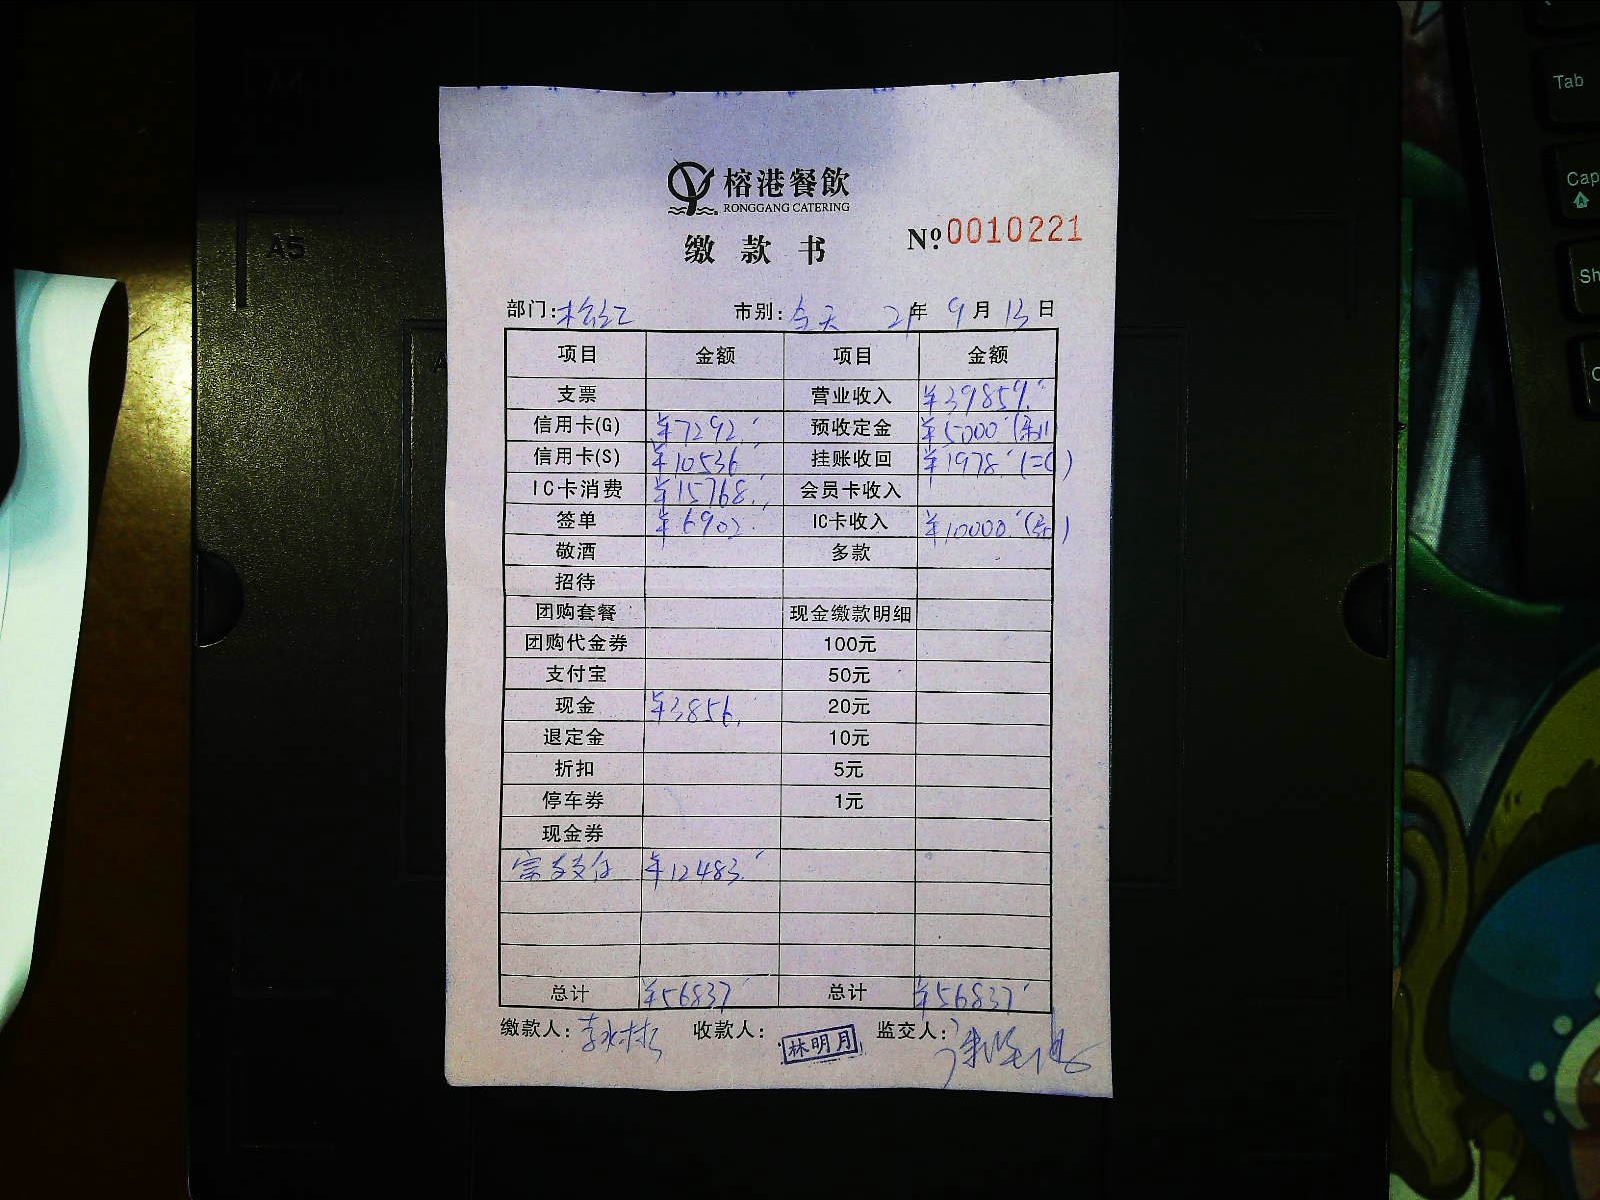 榕港餐飲
RONGGANG CATERING
缴款书 №0010221
部门: 市别:今天 21年 9月 13日
项目 金额 项目 金额
支票 营业收入 ¥39859.
信用卡(G) ¥7292. 预收定金 ¥5000
信用卡(S) ¥10536 挂账收回 ¥1978.
IC卡消费 ¥15768. 会员卡收入
签单 ¥6902. IC卡收入 ¥10000.
敬酒 多款
招待
团购套餐 现金缴款明细
团购代金券 100元
支付宝 50元
现金 ¥3856. 20元
退定金 10元
折扣 5元
停车券 1元
现金券
支付 ¥12483.
总计 ¥56837 总计 ¥56837
缴款人: 收款人: 林明月 监交人:
A5
Tab
Cap
Sh